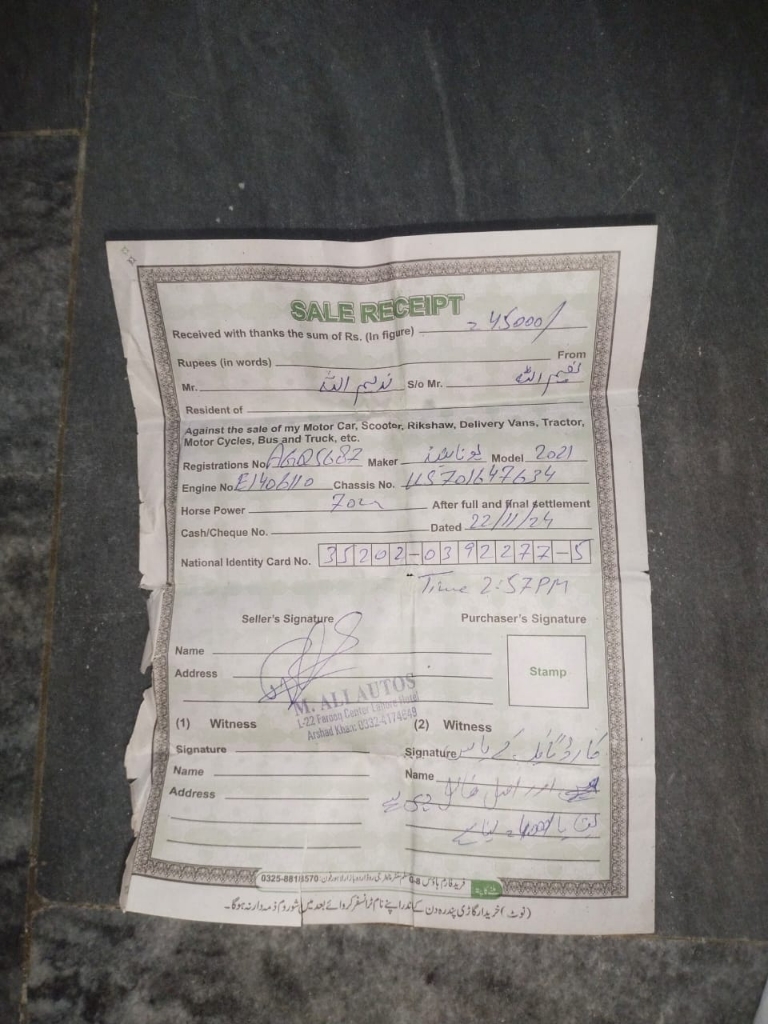 SALE RECEIPT
Received with thanks the sum of Rs. (In figure) = 45000/
Rupees (in words) From
Mr. ندیم اللہ S/o Mr. نعیم اللہ
Resident of
Against the sale of my Motor Car, Scooter, Rikshaw, Delivery Vans, Tractor,
Motor Cycles, Bus and Truck, etc.
Registrations No. AGQ5687 Maker یونائیٹڈ Model 2021
Engine No. E1406110 Chassis No. US701647634
Horse Power 70cc After full and final settlement
Cash/Cheque No. Dated 22/11/24
National Identity Card No. 35202-0392277-5
Time 2:57PM
Seller's Signature Purchaser's Signature
Name
Address
Stamp
M. ALI AUTOS
L-22 Center Lahore Hotel
Arshad Khan: 0332-4174849
(1) Witness (2) Witness
Signature Signature کے پاس
Name Name اور اصل فائل
Address
(نوٹ) خریدار گاڑی پندرہ دن کے اندر اپنے نام ٹرانسفر کروائے بعد میں شوروم ذمہ دار نہ ہوگا۔